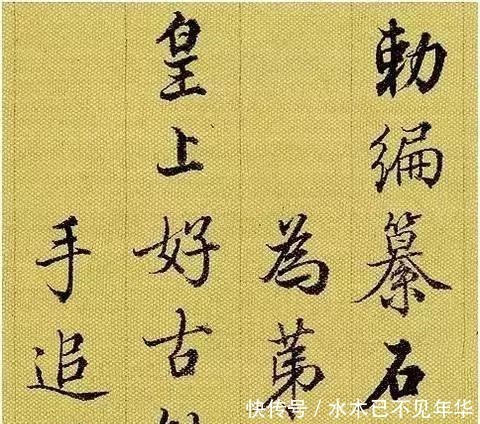 勅编纂石
為苐
皇上好古
手追
快传号／水木已不见年华